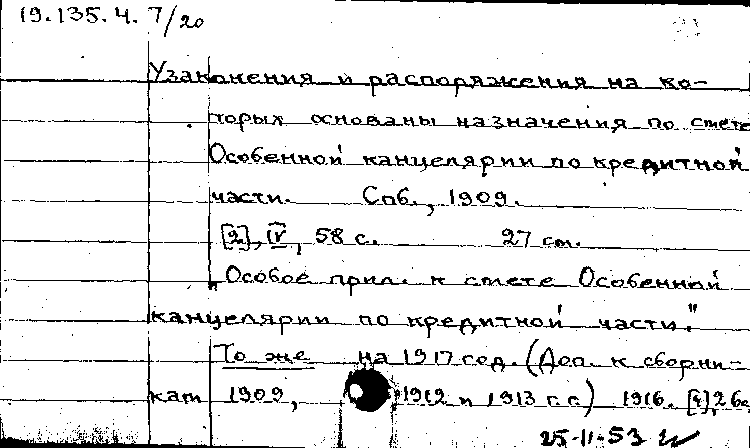 19.135.4.7/20
Узаконения и распоряжения на ко-
торых основаны назначения по смете
Особенной канцелярии по кредитной
части. Спб., 1909.
[2], IV, 58 с. 27 см.
„Особое прил. к смете Особенной
канцелярии по кредитной части."
То же на 1917 год. (Доп. к сборни-
кам 1909, 1912 и 1913 г.г.) 1916. [4], 26с
25-II-53